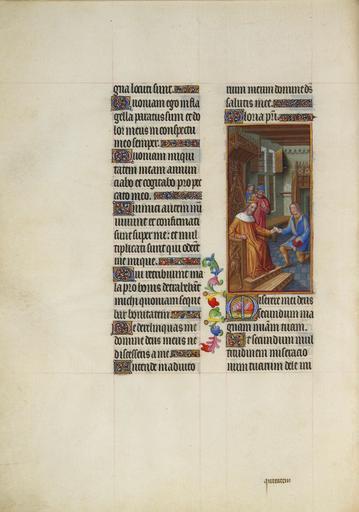 gna locuti sunt.
Quoniam ego in fla
gella paratus sum et do
lor meus in conspectu
meo semper.
Quoniam iniqui
tatem meam annun
ciabo et cogitabo pro pec
cato meo.
Inimici autem mei
vivunt et confirmati
sunt super me: et mul
tiplicati sunt qui oderūt
me inique.
Qui retribuunt ma
la pro bonis detrahebāt
michi quoniam seque
bar bonitatem.
Ne derelinquas me
domine deus meus ne
discesseris a me.
Intende in adiuto
rium meum domine dš
salutis mee.
Gloria pri.
Miserere mei deus
secundum ma
gnam miam tuam.
Et secundum mul
titudinem miseracio
num tuarum dele ini